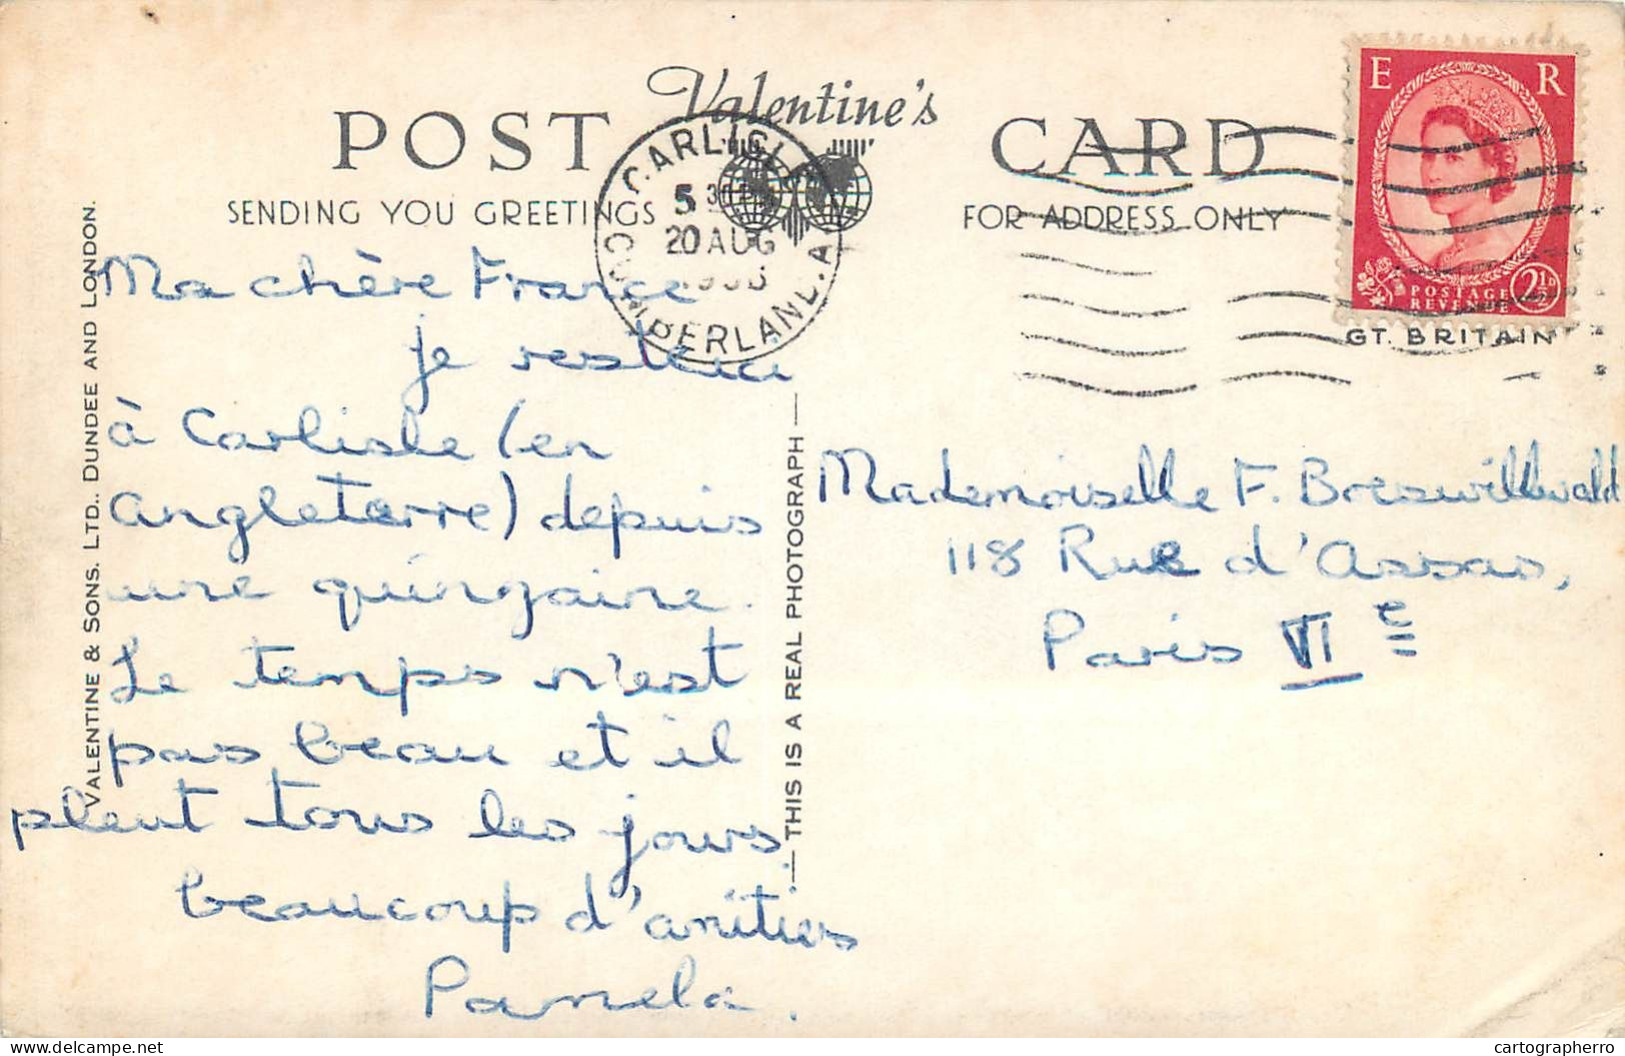 Valentine's
POST CARD
SENDING YOU GREETINGS
FOR ADDRESS ONLY
CARLISLE
5 30 P
20 AUG
CUMBERLAND
E R
POSTAGE
REVENUE
2½D
GT. BRITAIN
VALENTINE & SONS. LTD., DUNDEE AND LONDON.
THIS IS A REAL PHOTOGRAPH
Ma chère France
je
à Carlisle (en
Angleterre) depuis
une quinzaine.
Le temps n'est
pas beau et il
pleut tous les jours.
beaucoup d'amitiés
Pamela.
Mademoiselle F. Boeswillwald
118 Rue d'Assas,
Paris VIe
cartographerro